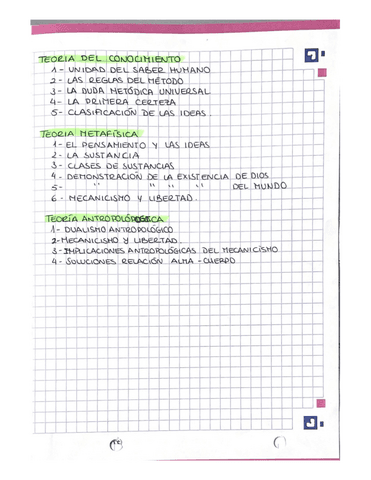 TEORIA DEL CONOCIMIENTO
1- UNIDAD DEL SABER HUMANO
2- LAS REGLAS DEL MÉTODO
3- LA DUDA METÓDICA UNIVERSAL
4- LA PRIMERA CERTEZA
5- CLASIFICACIÓN DE LAS IDEAS.
TEORIA METAFÍSICA
1- EL PENSAMIENTO Y LAS IDEAS
2- LA SUSTANCIA
3- CLASES DE SUSTANCIAS
4- DEMONSTRACIÓN DE LA EXISTENCIA DE DIOS
5- " " " " DEL MUNDO
6- MECANICISMO Y LIBERTAD.
TEORÍA ANTROPOLÓGICA
1- DUALISMO ANTROPOLÓGICO
2- MECANICISMO Y LIBERTAD.
3- IMPLICACIONES ANTROPOLÓGICAS DEL MECANICISMO
4- SOLUCIONES RELACIÓN ALMA-CUERPO